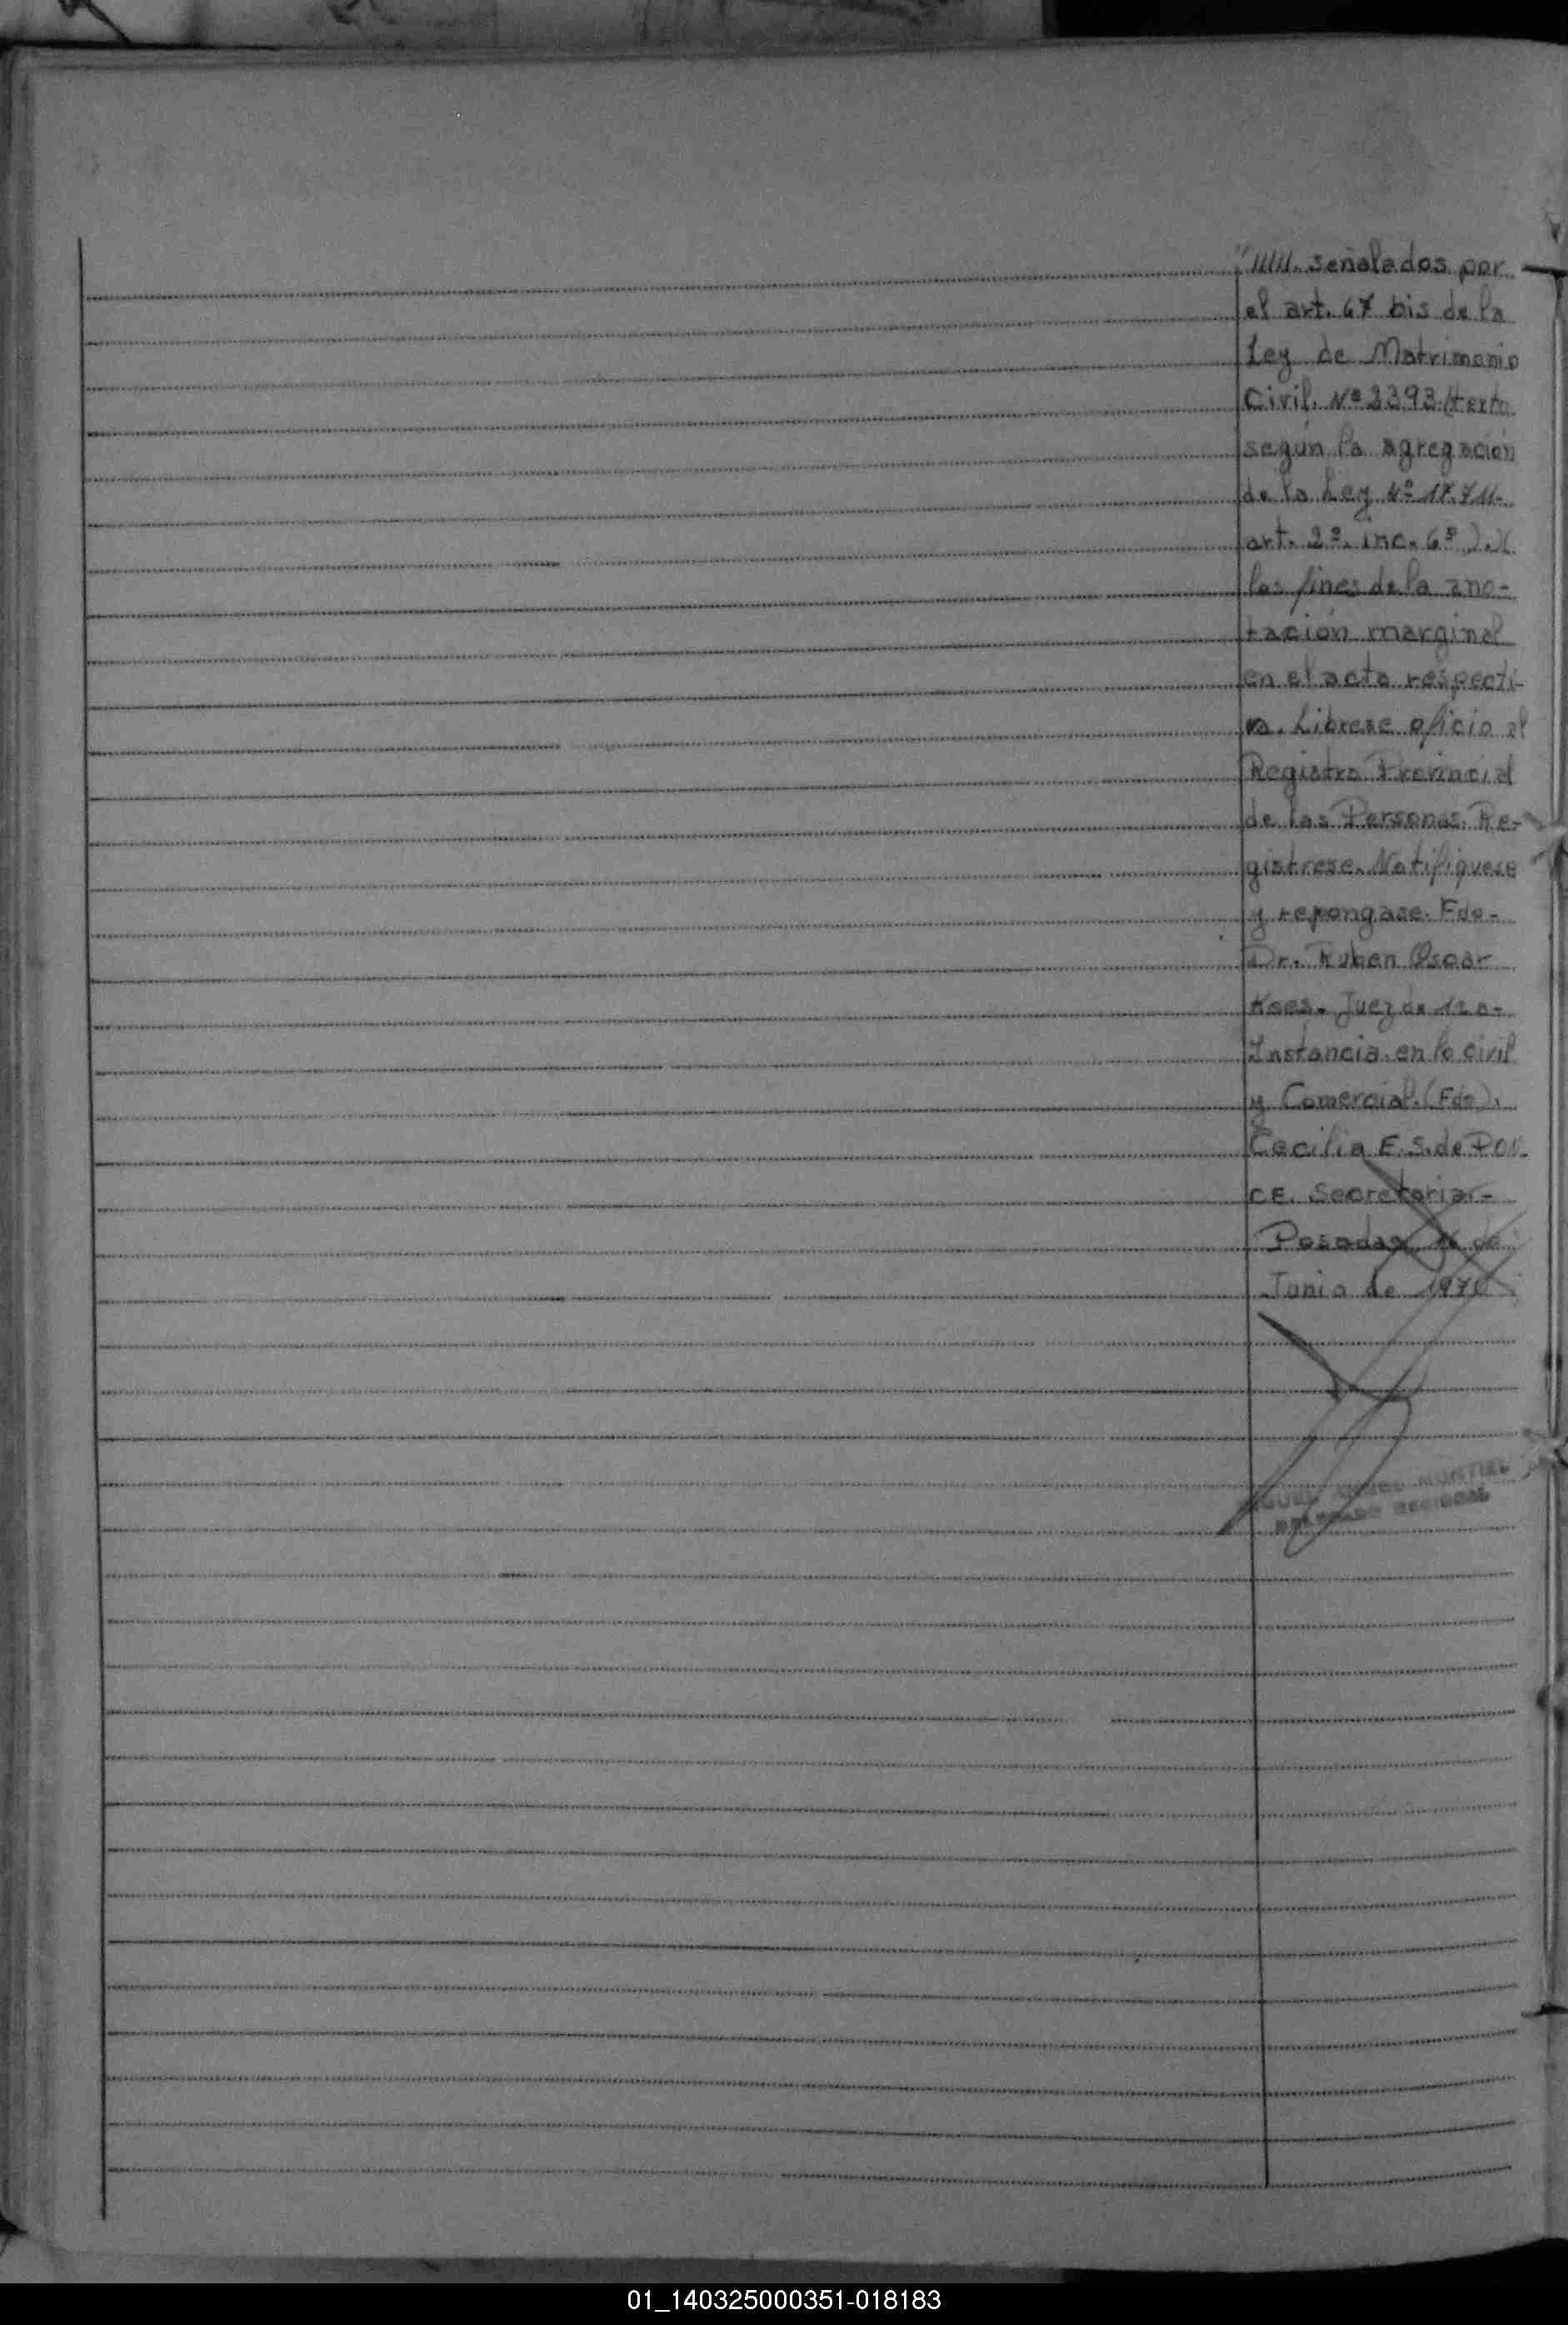 "////. señalados por
el art. 67 bis de la
Ley de Matrimonio
Civil. Nº 2393 (texto
según la agregación
de la Ley Nº 17.711-
art. 2º. inc. 6º).
los fines de la ano-
tación marginal
en el acta respecti-
va. Librese oficio al
Registro Provincial
de las Personas. Re-
gistrese. Notifiquese
y repongase. Fdo-
Dr. Ruben Oscar
Juez de 1ra-
Instancia en lo civil
y Comercial. (Fdo).
Cecilia E. S. de PON-
CE. Secretaria.-
Posadas, de
Junio de 1970
MONTIEL
DELEGADO REGIONAL
01_140325000351-018183